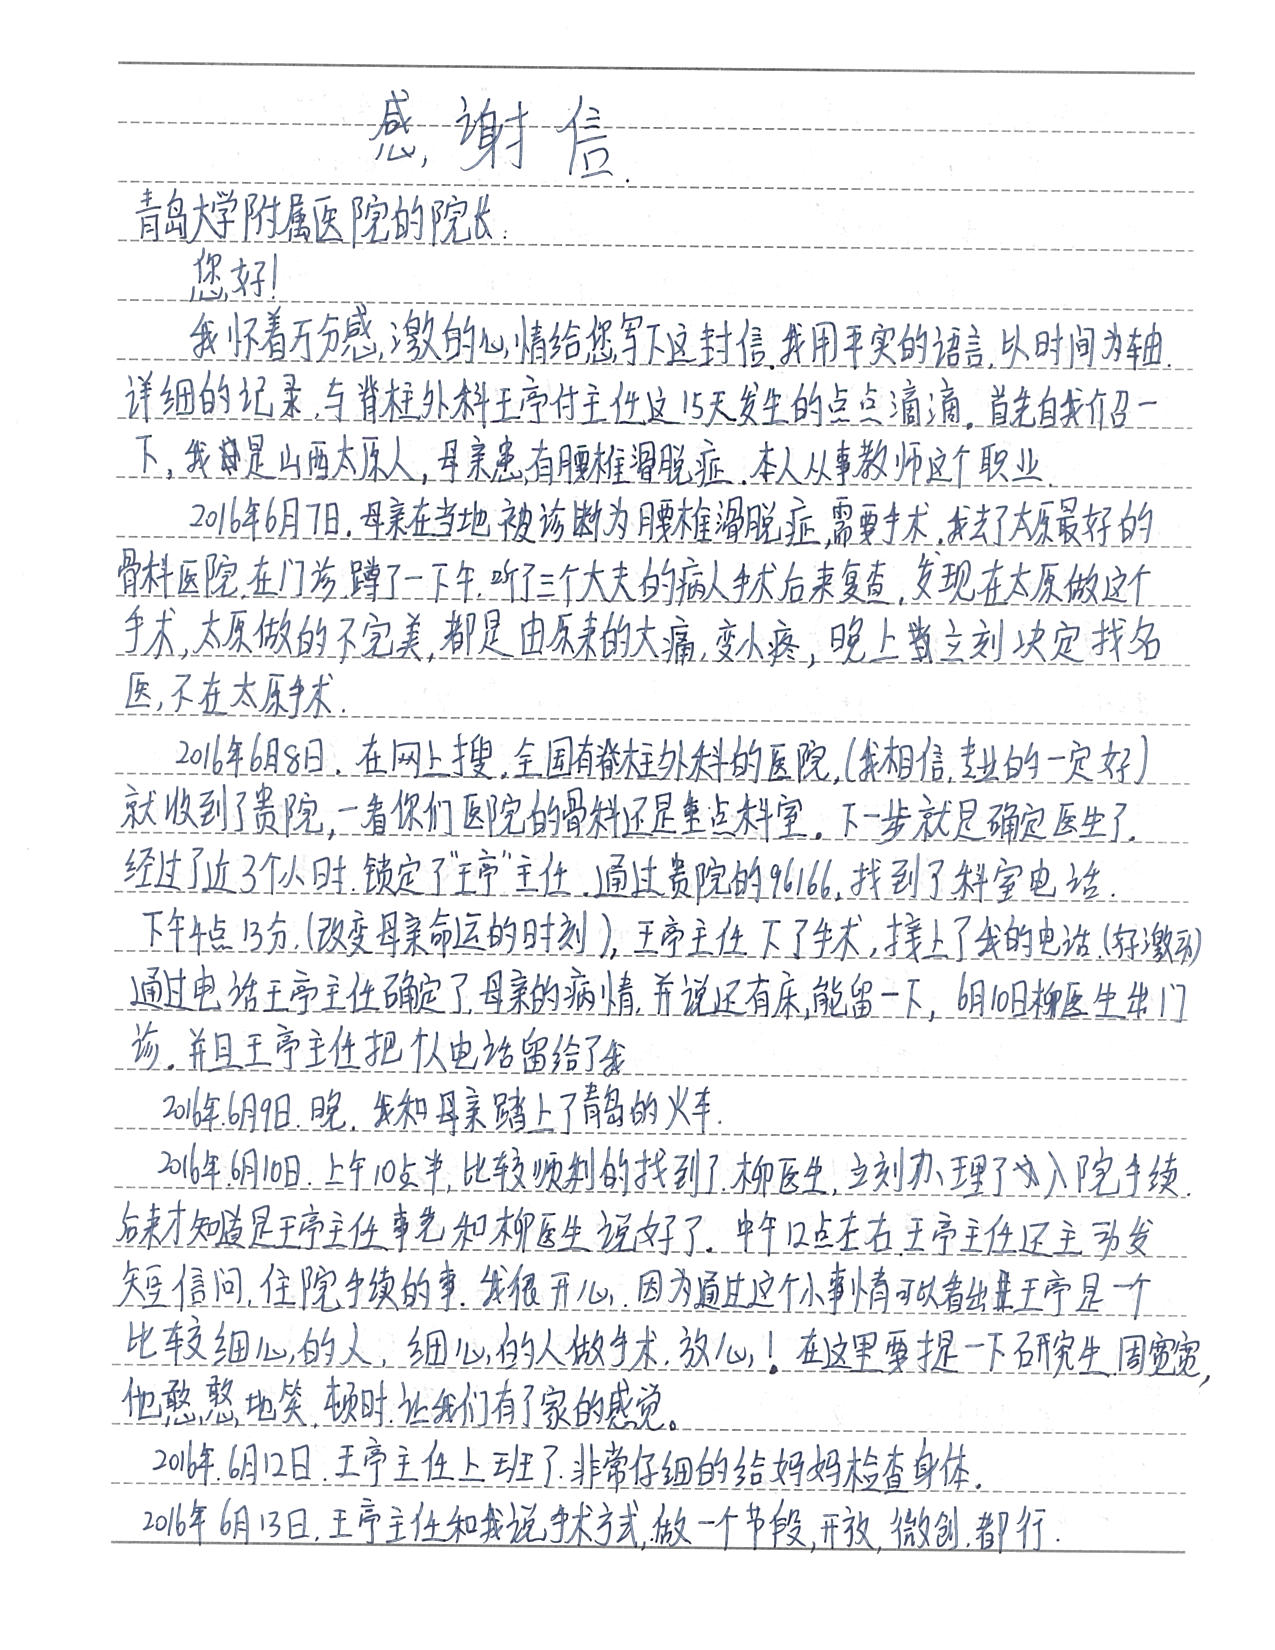 感谢信.
青岛大学附属医院的院长:
您好!
我怀着万分感激的心情给您写下这封信.我用平实的语言,以时间为轴.
详细的记录,与脊柱外科王亭付主任这15天发生的点点滴滴。首先自我介绍一
下,我是山西太原人,母亲患有腰椎滑脱症.本人从事教师这个职业.
2016年6月7日.母亲在当地被诊断为腰椎滑脱症,需要手术.我去了太原最好的
骨科医院,在门诊蹲了一下午.听了三个大夫的病人手术后来复查,发现在太原做这个
手术,太原做的不完美,都是由原来的大痛,变小疼,晚上立刻决定找名
医,不在太原手术.
2016年6月8日.在网上搜,全国有脊柱外科的医院,(我相信,专业的一定好)
就收到了贵院,一看你们医院的骨科还是重点科室。下一步就是确定医生了.
经过了近3个小时.锁定了"王亭"主任.通过贵院的96166,找到了科室电话.
下午4点13分,(改变母亲命运的时刻),王亭主任下了手术,接上了我的电话.(好激动)
通过电话王亭主任确定了母亲的病情.并说还有床,能留一下,6月10日柳医生出门
诊.并且王亭主任把个人电话留给了我
2016年.6月9日.晚.我和母亲踏上了青岛的火车.
2016年.6月10日.上午10点半,比较顺利的找到了柳医生,立刻办理了入院手续.
后来才知道是王亭主任事先和柳医生说好了.中午12点左右王亭主任还主动发
短信问,住院手续的事.我很开心.因为通过这个小事情可以看出王亭是一个
比较细心的人,细心的人做手术.放心!在这里要提一下研究生周宽宽,
他憨憨地笑,顿时让我们有了家的感觉。
2016年.6月12日.王亭主任上班了.非常仔细的给妈妈检查身体.
2016年6月13日.王亭主任和我说手术方式,做一个节段,开放,微创.都行.